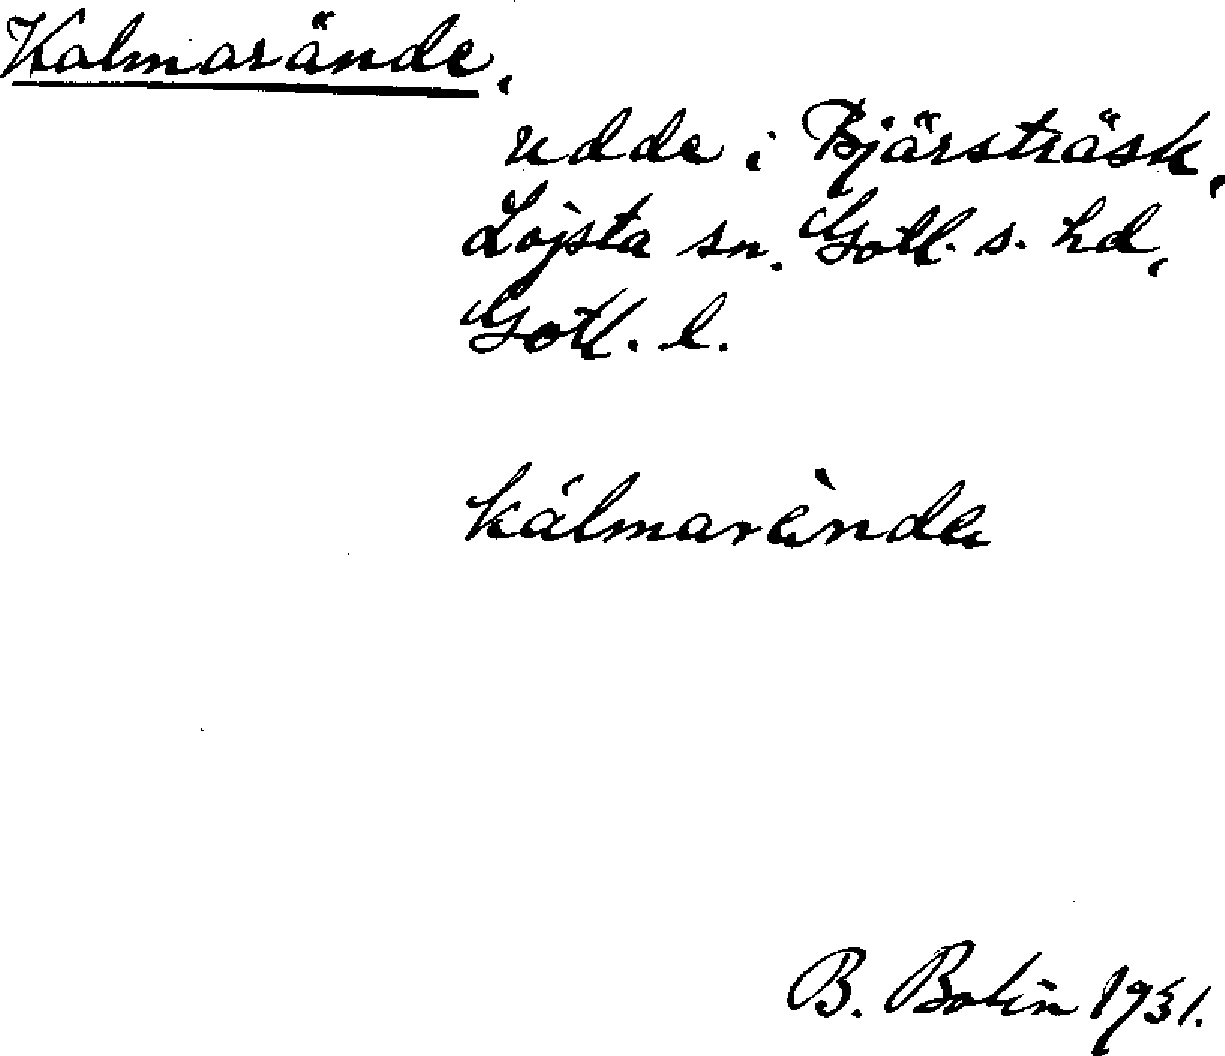 Kalmarände,
udde i Bjärsträsk,
Lojsta sn. Gotl. s. hd,
Gotl. l.
kálmarèndе
B. Bolin 1931.